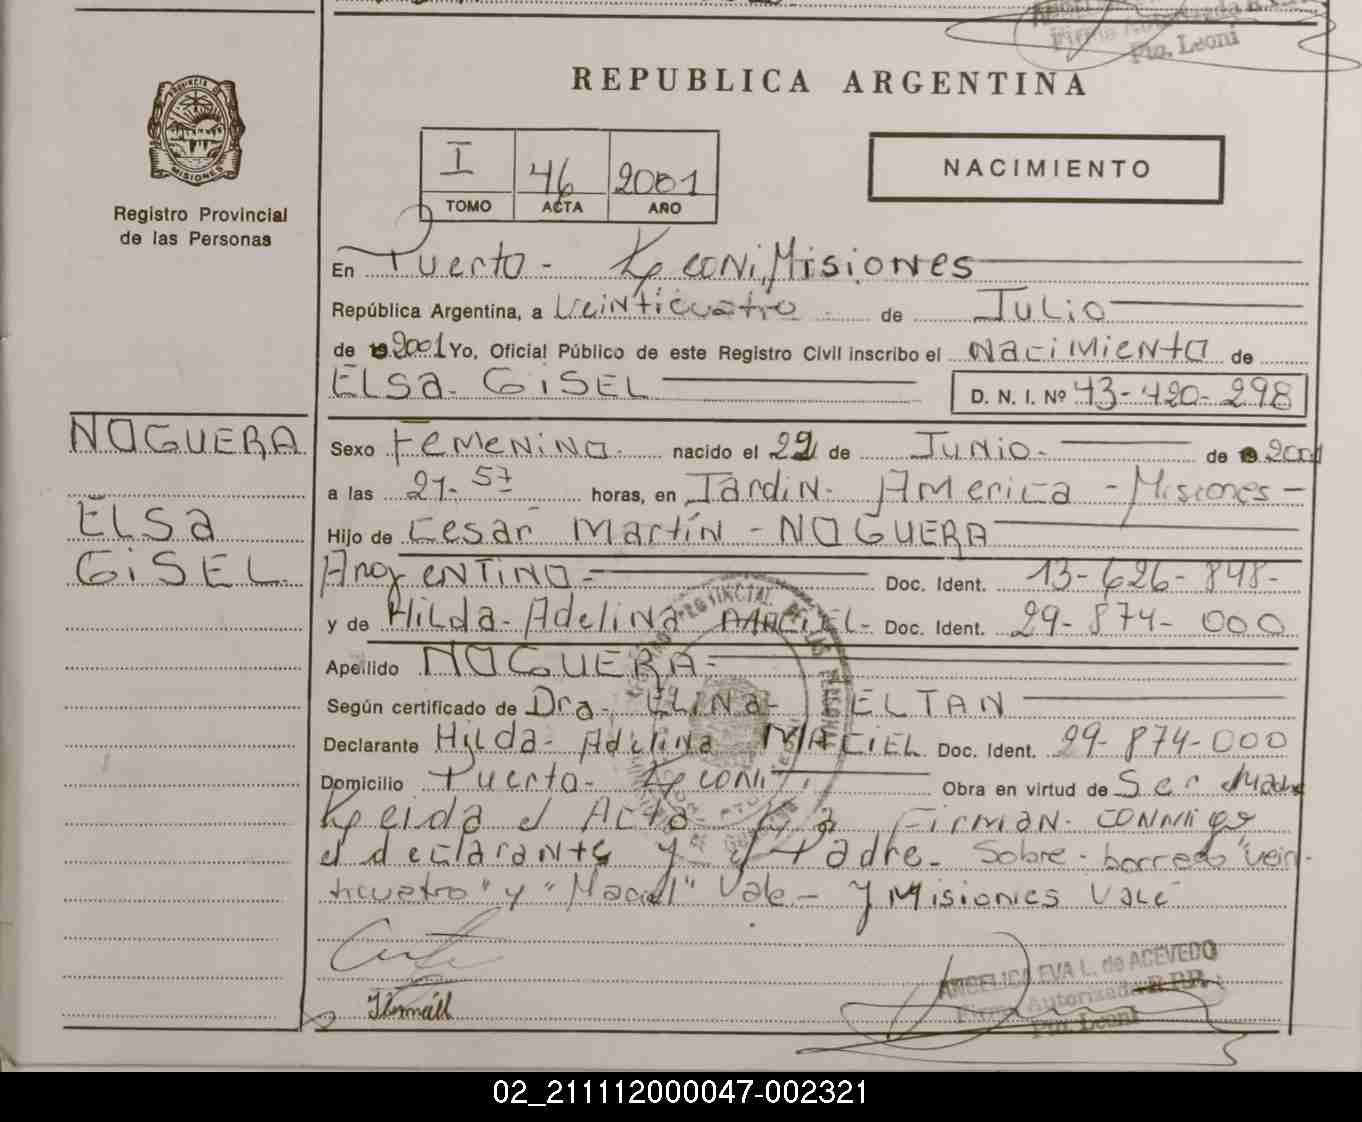 Pto. Leoni
REPUBLICA ARGENTINA
PROVINCIA DE
MISIONES
Registro Provincial
de las Personas
I 46 2001
TOMO ACTA AÑO
NACIMIENTO
En Puerto - Leoni, Misiones
República Argentina, a Veinticuatro de Julio
de 2001 Yo, Oficial Público de este Registro Civil inscribo el Nacimiento de
ELSA GISEL
D. N. I. Nº 43-420-298
NOGUERA
ELSA
GISEL
Sexo Femenino. nacido el 22 de Junio de 2001
a las 21-57 horas, en Jardin America - Misiones -
Hijo de Cesar Martín - NOGUERA
Argentino - Doc. Ident. 13-626-848-
y de Hilda - Adelina MACIEL - Doc. Ident. 29-874-000
Apellido NOGUERA -
Según certificado de Dra. ELINA ELTAN
Declarante Hilda - Adelina MACIEL Doc. Ident. 29-874-000
Domicilio Puerto - Leoni Obra en virtud de Ser Madre
Leida el Acta La Firman conmigo
el declarante y el Padre. Sobre - borrado "Vein-
ticuatro" y "Maciel" Vale - y Misiones Vale
ANGELICA EVA L. de ACEVEDO
Firma Autorizada R.P.P.
Pto. Leoni
02_211112000047-002321